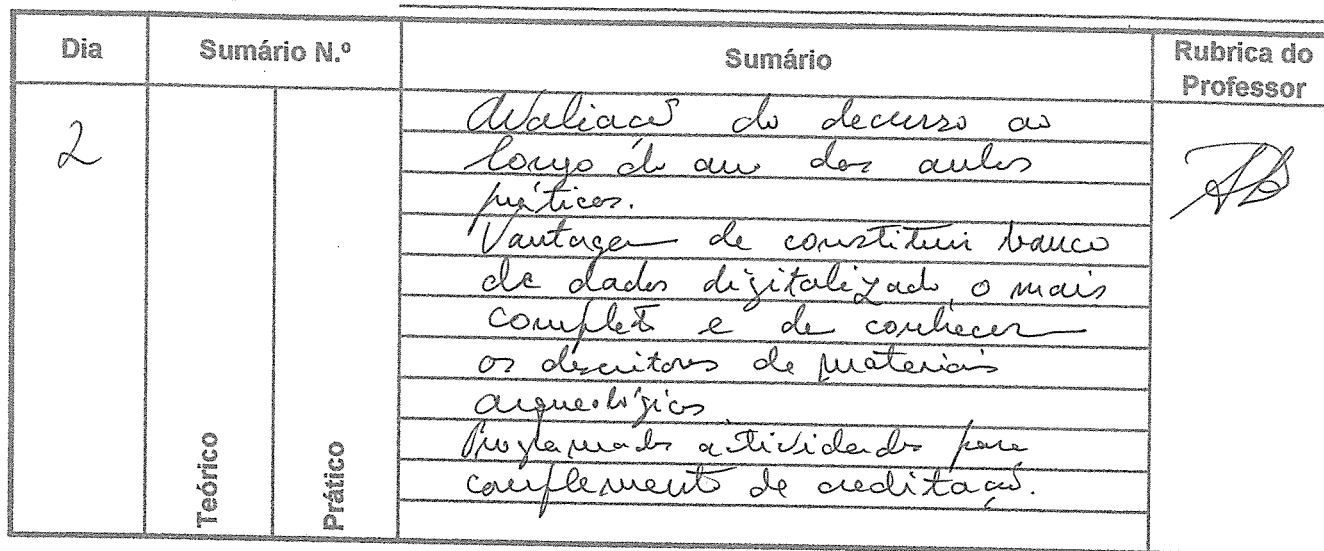 Dia
Sumário N.º
Sumário
Rubrica do
Professor
2
Avaliação do decurso ao
longo do ano das aulas
práticas.
Vantagem de constituir banco
de dados digitalizado, o mais
completo e de conhecer
os descritores de materiais
arqueológicos
Programadas actividades para
complemento de creditação.
Teórico
Prático